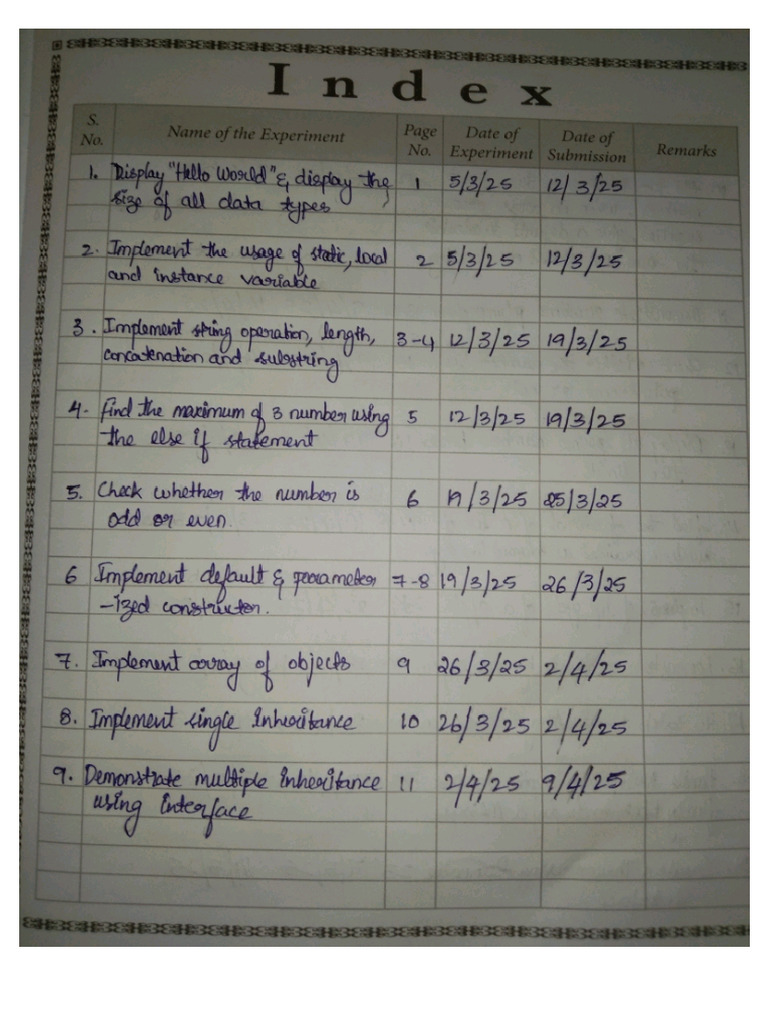 Index
S. No. Name of the Experiment Page No. Date of Experiment Date of Submission Remarks
1. Display "Hello World" & display the 1 5/3/25 12/3/25
size of all data types
2. Implement the usage of static, local 2 5/3/25 12/3/25
and instance variable
3. Implement string operation, length, 3-4 12/3/25 19/3/25
concatenation and substring
4. Find the maximum of 3 number using 5 12/3/25 19/3/25
the else if statement
5. Check whether the number is 6 19/3/25 25/3/25
odd or even.
6 Implement default & parameter 7-8 19/3/25 26/3/25
-ized constructor.
7. Implement array of objects 9 26/3/25 2/4/25
8. Implement single Inheritance 10 26/3/25 2/4/25
9. Demonstrate multiple inheritance 11 2/4/25 9/4/25
using interface